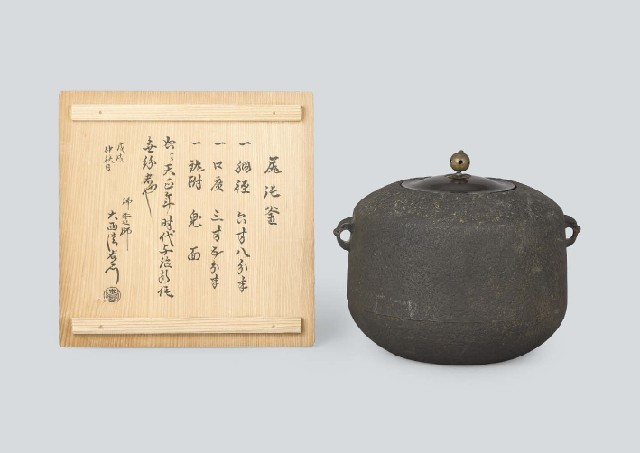 尾詫釜
一 胴径 六寸八分半
一 口広 三寸五分半
一 鐶附 鬼面
右ハ天正年時代与治郎詫
無疑者也
戊戌
仲秋日
御釜師
大西清右衛門